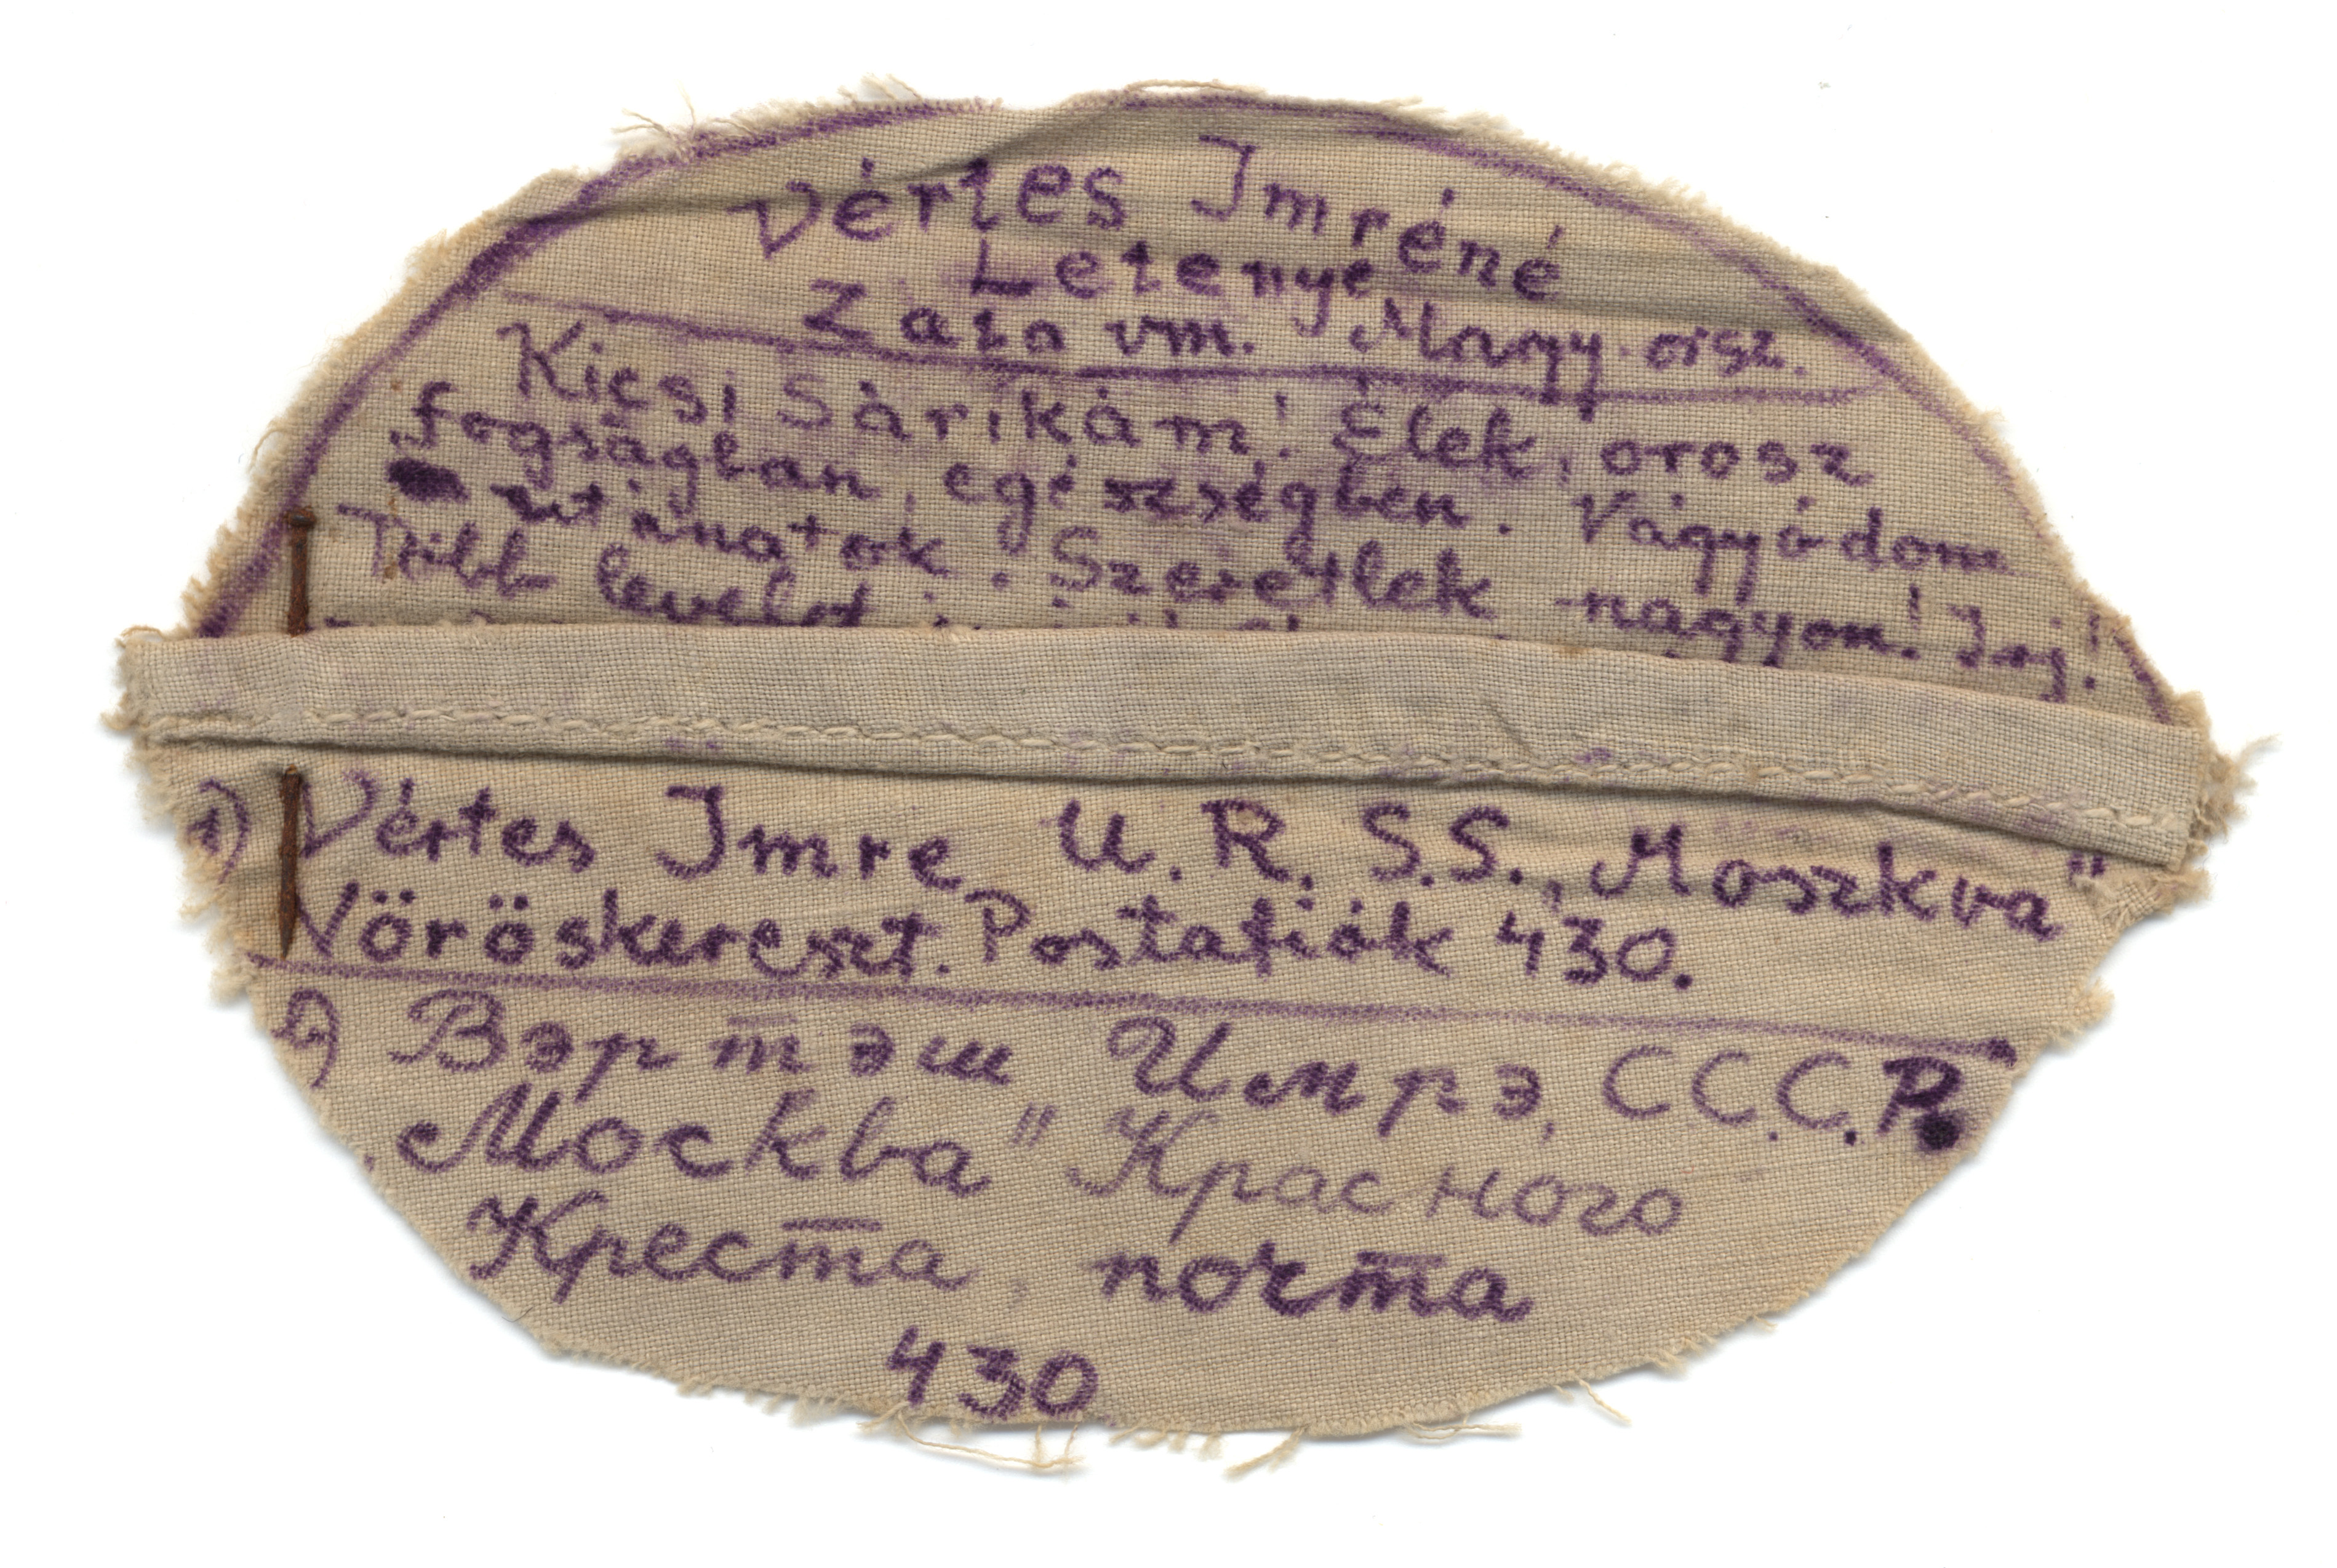 Vértes Imréné
Letenye
Zala vm. Magy. orsz.
Kicsi Sárikám! Élek, orosz
fogságban, egészségben. Vágyódom
utánatok. Szeretlek nagyon! Irj!
Több levelet
1) Vértes Imre U.R.S.S. „Moszkva"
Vöröskereszt. Postafiók 430.
2) Вэртэш Имрэ, С.С.С.Р.
„Москва" Красного
Креста, почта
430